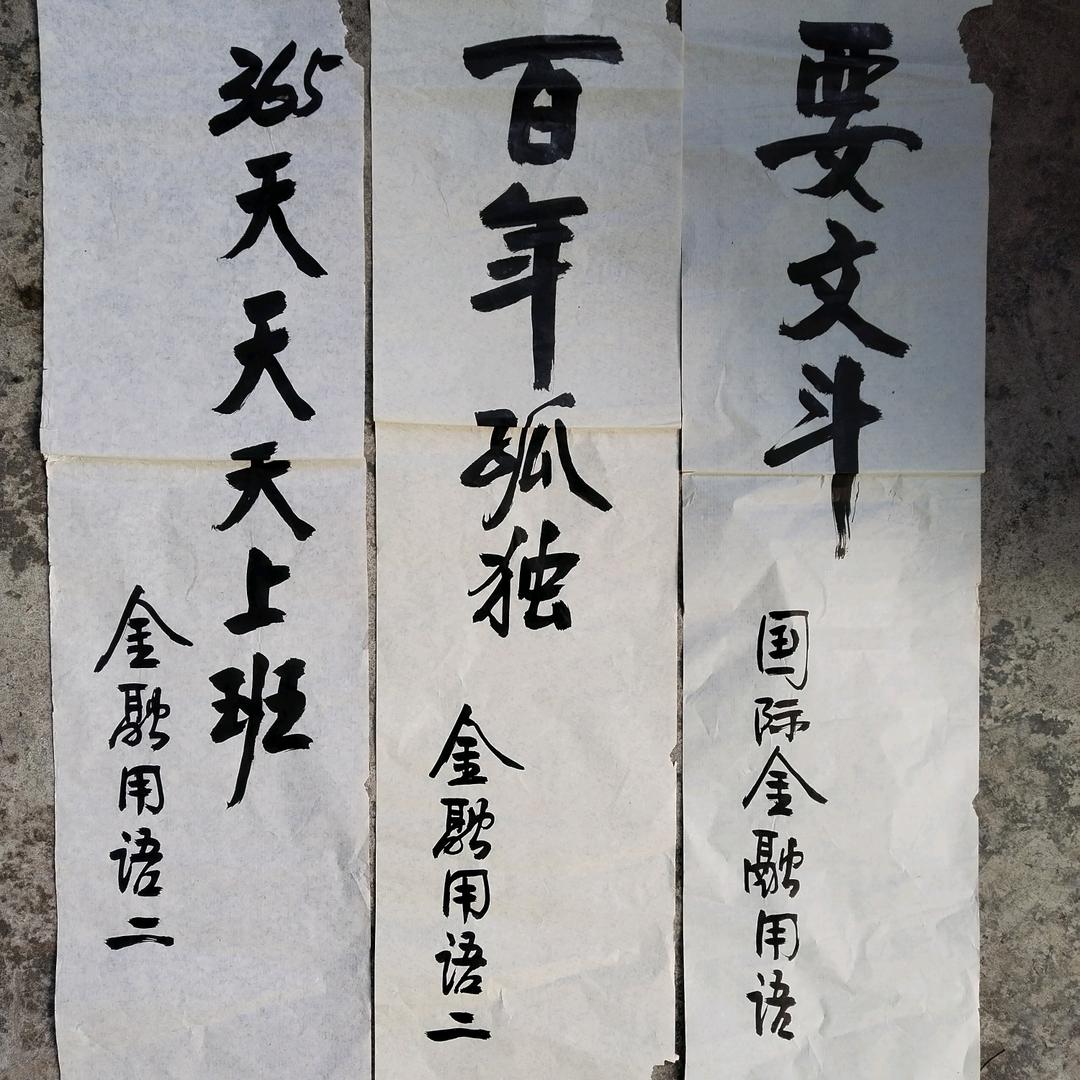 要文斗
国际金融用语
百年孤独
金融用语二
365天天天上班
金融用语二